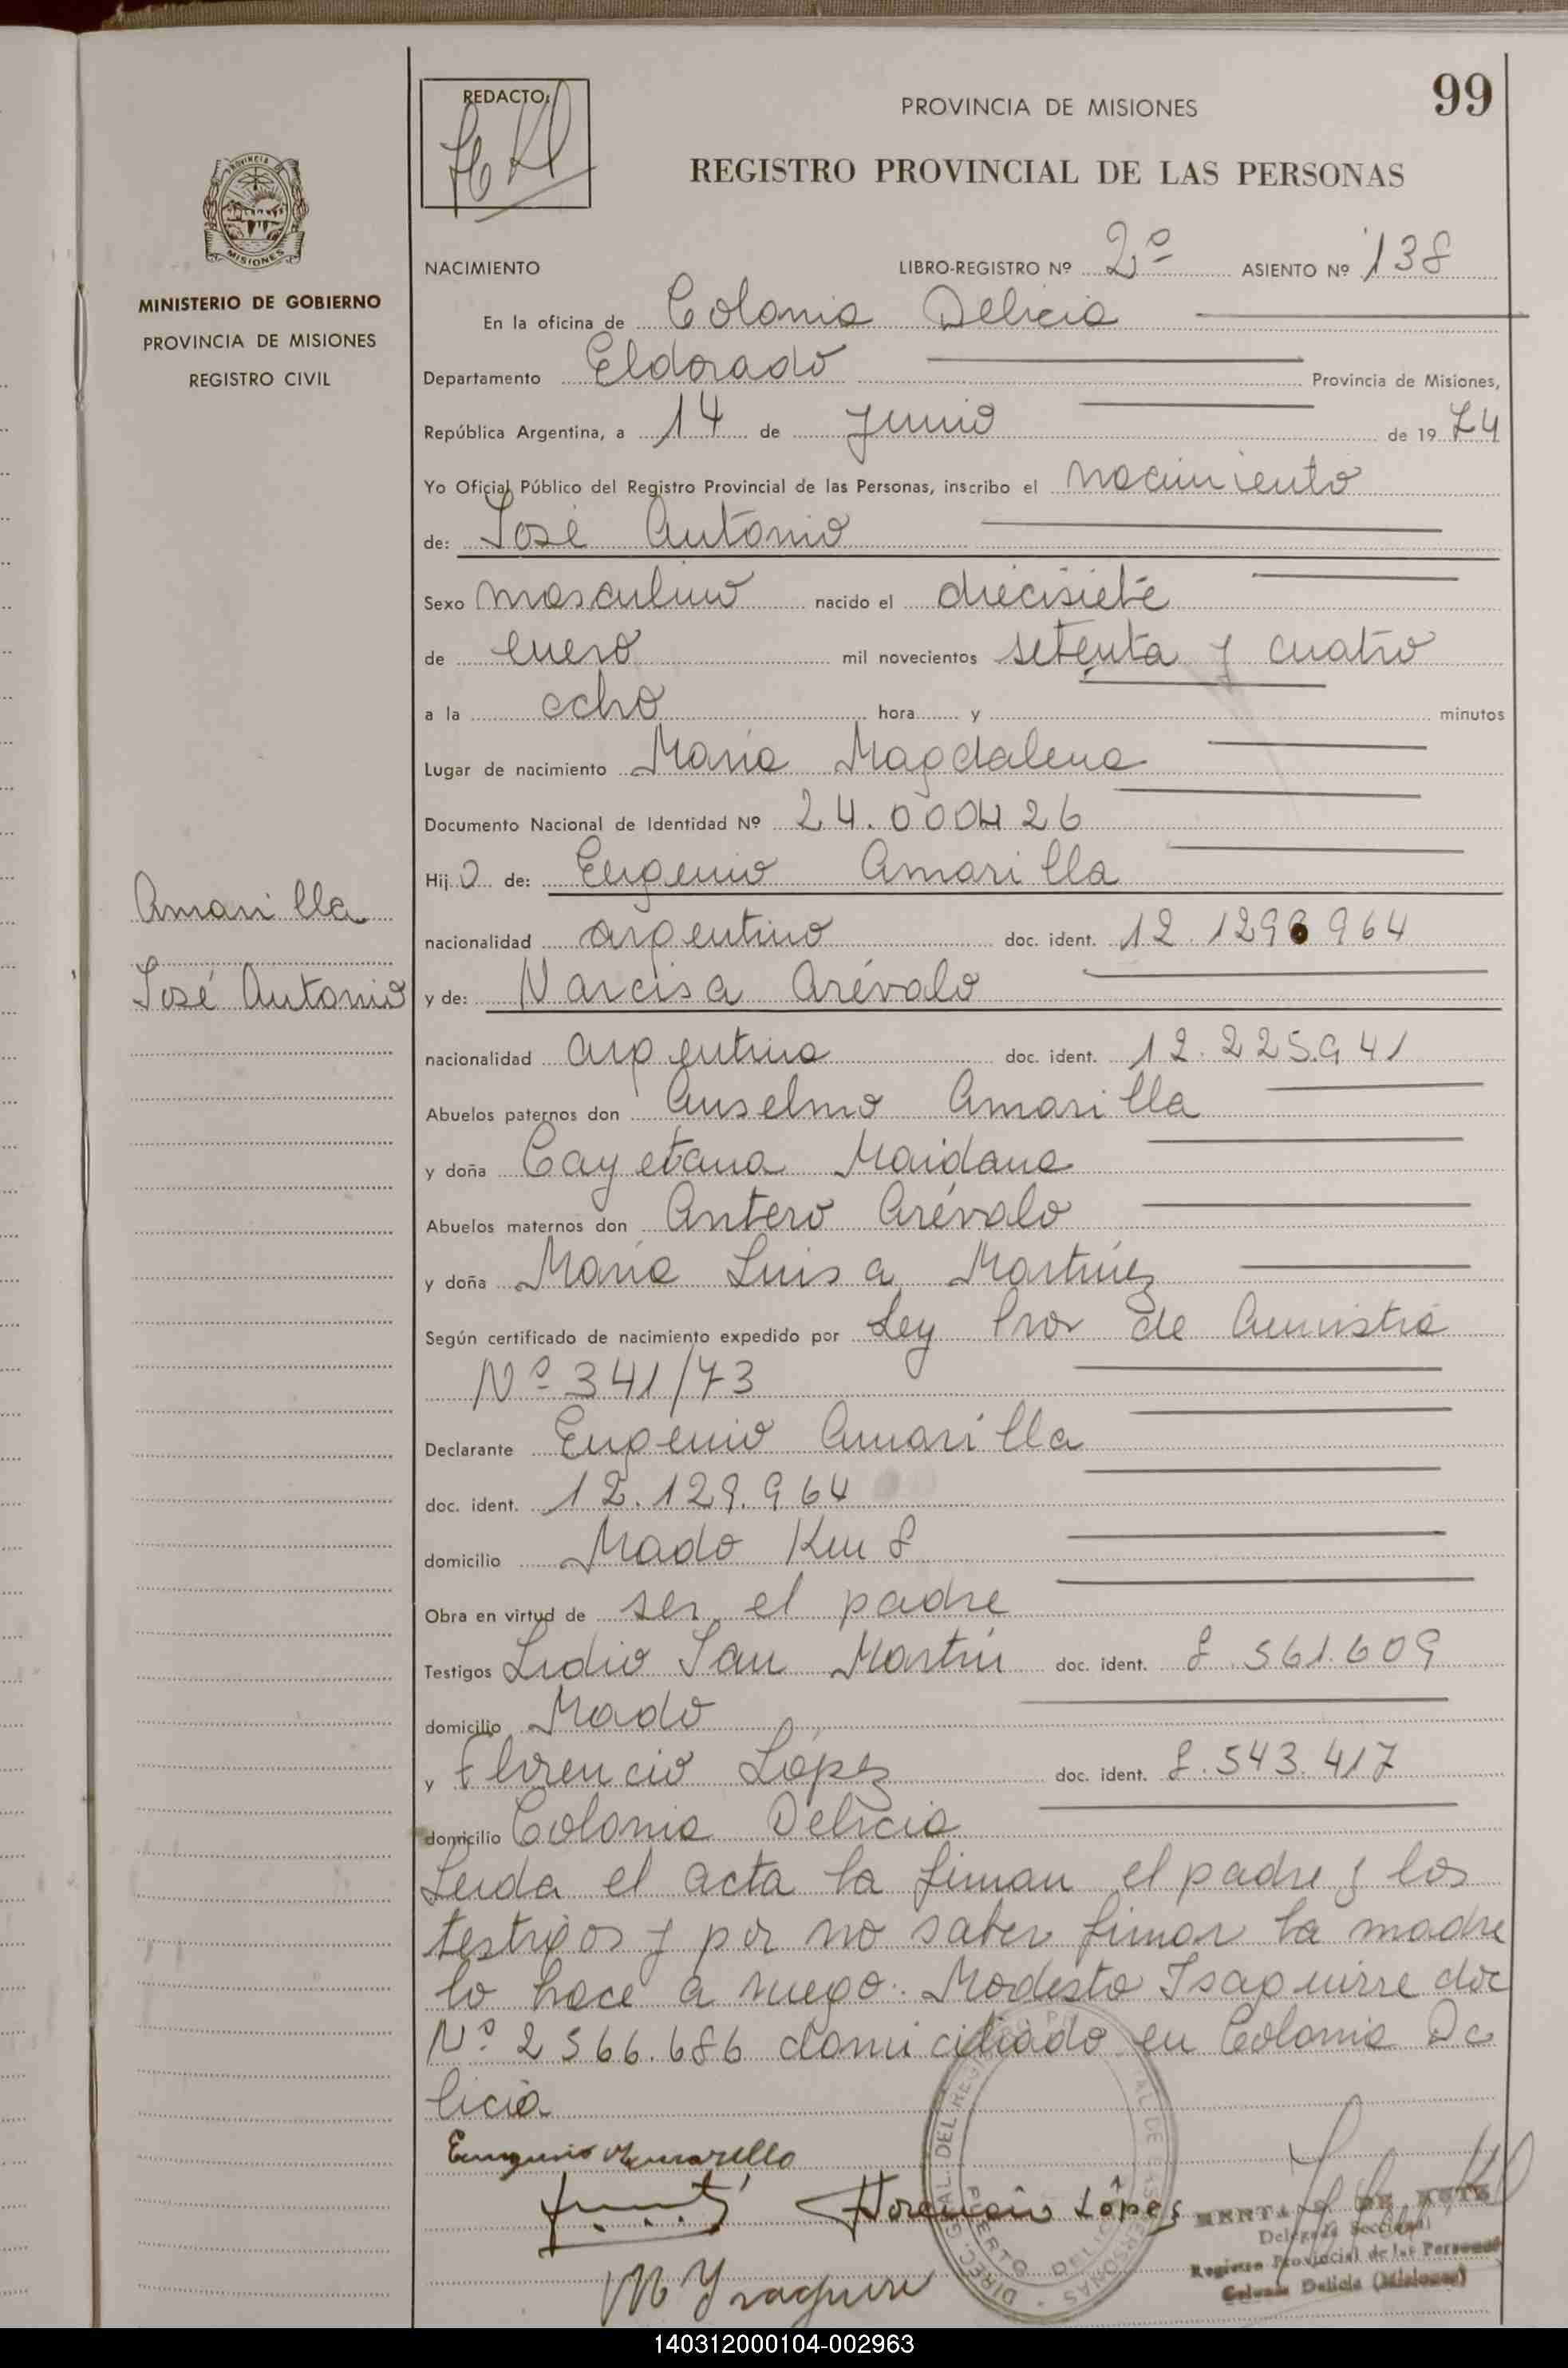 99
REDACTO:
PROVINCIA DE MISIONES
REGISTRO PROVINCIAL DE LAS PERSONAS
PROVINCIA
MISIONES
MINISTERIO DE GOBIERNO
PROVINCIA DE MISIONES
REGISTRO CIVIL
NACIMIENTO LIBRO-REGISTRO Nº 2º ASIENTO Nº 138
En la oficina de Colonia Delicia
Departamento Eldorado Provincia de Misiones,
República Argentina, a 14 de Junio de 19 74
Yo Oficial Público del Registro Provincial de las Personas, inscribo el nacimiento
de: José Antonio
Sexo masculino nacido el diecisiete
de enero mil novecientos setenta y cuatro
a la ocho hora y minutos
Lugar de nacimiento Maria Magdalena
Documento Nacional de Identidad Nº 24.000426
Hij o de: Eugenio Amarilla
Amarilla
José Antonio
nacionalidad argentino doc. ident. 12.129 964
y de: Narcisa Arévalo
nacionalidad argentina doc. ident. 12.225.941
Abuelos paternos don Anselmo Amarilla
y doña Cayetana Maidana
Abuelos maternos don Antero Arévalo
y doña Maria Luisa Martínez
Según certificado de nacimiento expedido por Ley Prov de Amnistia
Nº 341/73
Declarante Eugenio Amarilla
doc. ident. 12.129.964
domicilio Mado Km 8
Obra en virtud de ser el padre
Testigos Lidio San Martín doc. ident. 8.561.609
domicilio Mado
y Florencio López doc. ident. 8.543.417
domicilio Colonia Delicia
Leida el acta la firman el padre y los
testigos y por no saber firmar la madre
lo hace a ruego: Modesto Isaguirre doc
Nº 2 566.686 domiciliado en Colonia De
licia
Eugenio Amarilla
Florencio López
M Ysaguirre
DIREC. GRAL. DEL REGISTRO PROVINCIAL DE LAS PERSONAS
Delegada Seccional
Registro Provincial de las Personas
Colonia Delicia (Misiones)
140312000104-002963